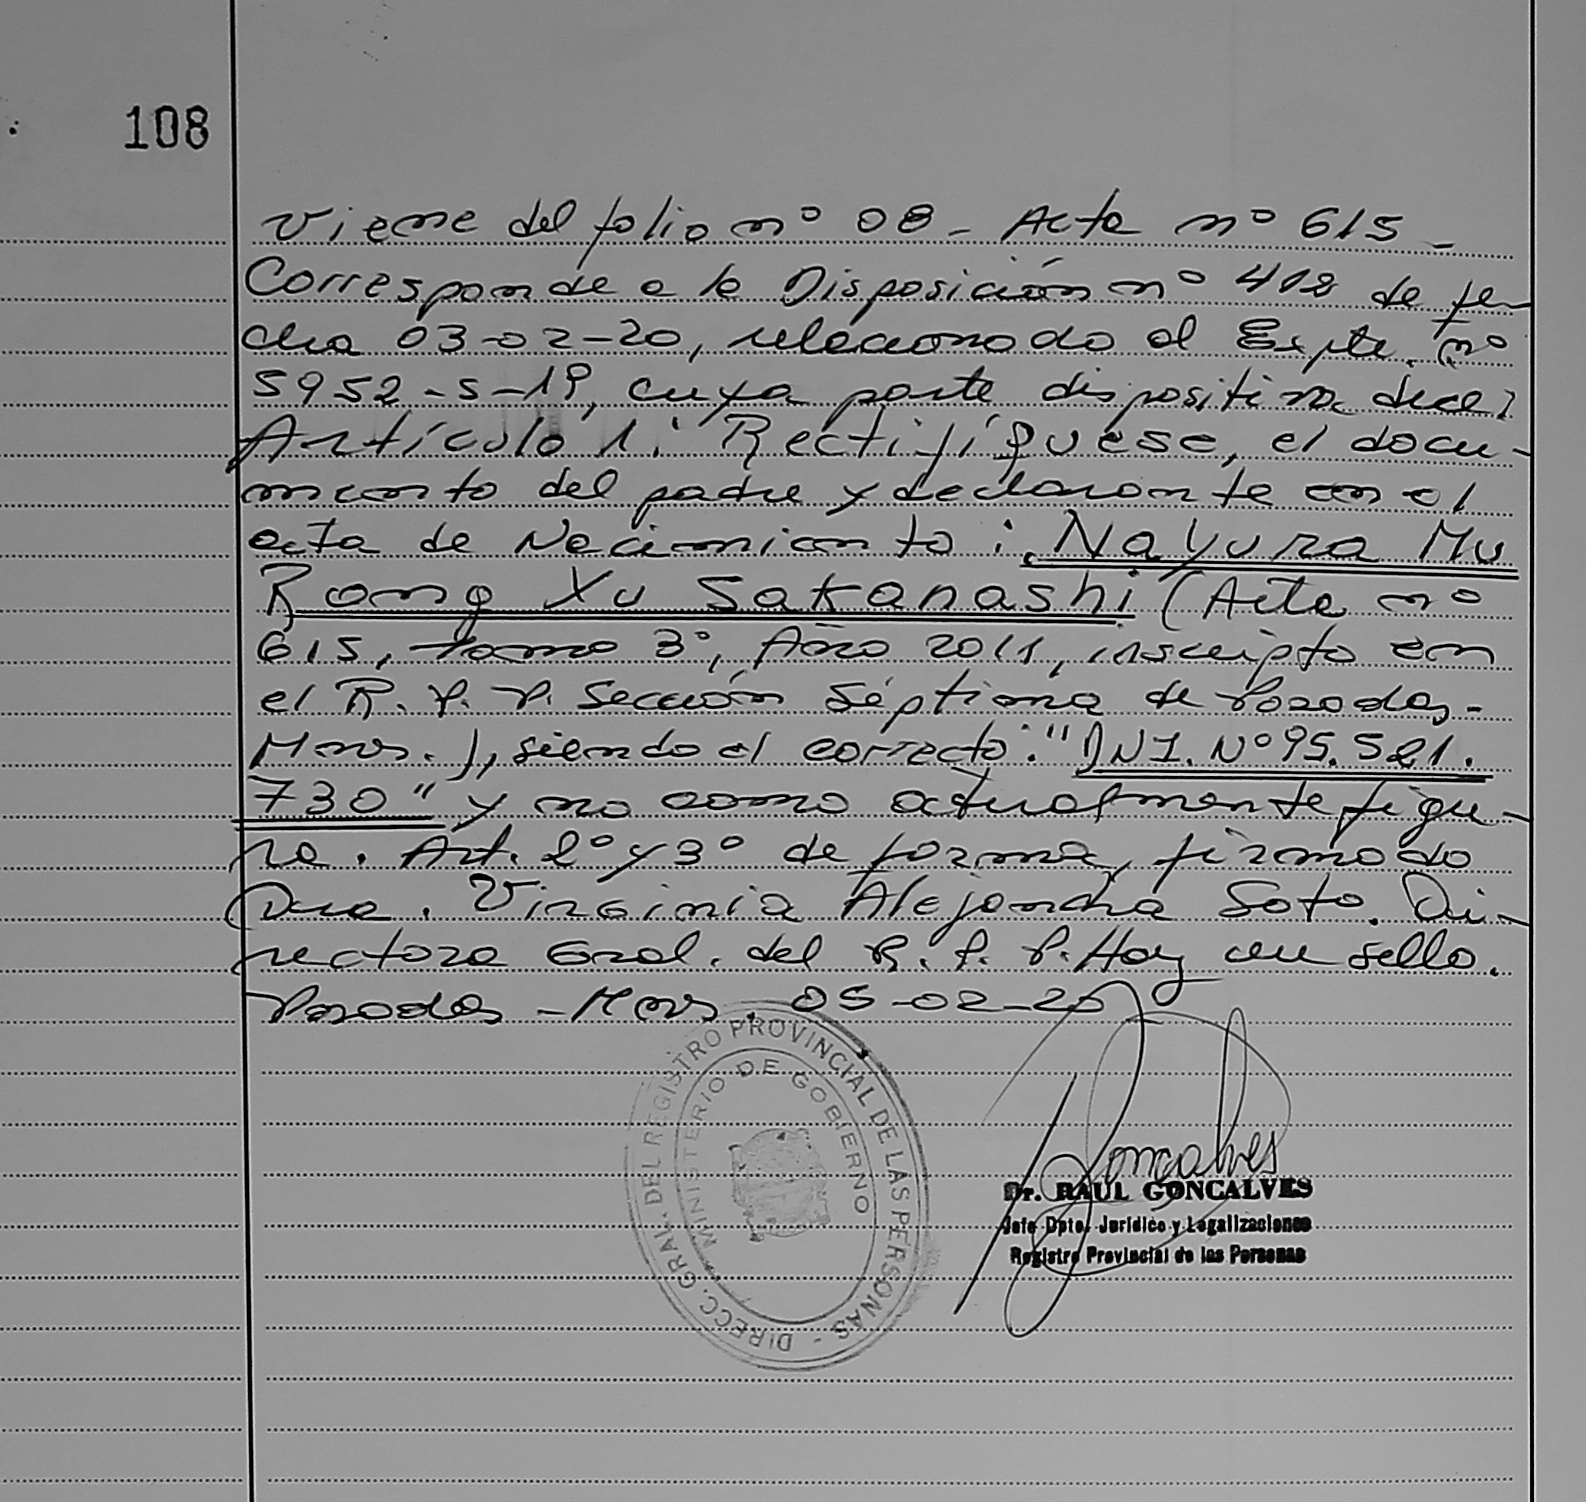 108
Viene del folio nº 08 - Acta nº 615 -
Corresponde a la Disposición nº 412 de fe-
cha 03-02-20, relacionado al Expte. nº
5952-S-19, cuya parte dispositiva dice:
Artículo 1: Rectifíquese, el docu-
mento del padre y declarante en el
acta de Nacimiento: Nayura Mu
Rong Xu Sakanashi (Acta nº
615, tomo 3º, Año 2011, inscripto en
el R. P. P. Sección Séptima de Posadas -
Mnes.), siendo el correcto: "DNI. Nº 95.521.
730" y no como actualmente figu-
ra. Art. 2º y 3º de forma, firmado
Dra. Virginia Alejandra Soto. Di-
rectora Gral. del R. P. P. Hay un sello.
Posadas - Mnes. 05-02-20
DIRECC. GRAL. DEL REGISTRO PROVINCIAL DE LAS PERSONAS -
MINISTERIO DE GOBIERNO
Goncalves
Dr. RAUL GONCALVES
Jefe Dpto. Jurídico y Legalizaciones
Registro Provincial de las Personas